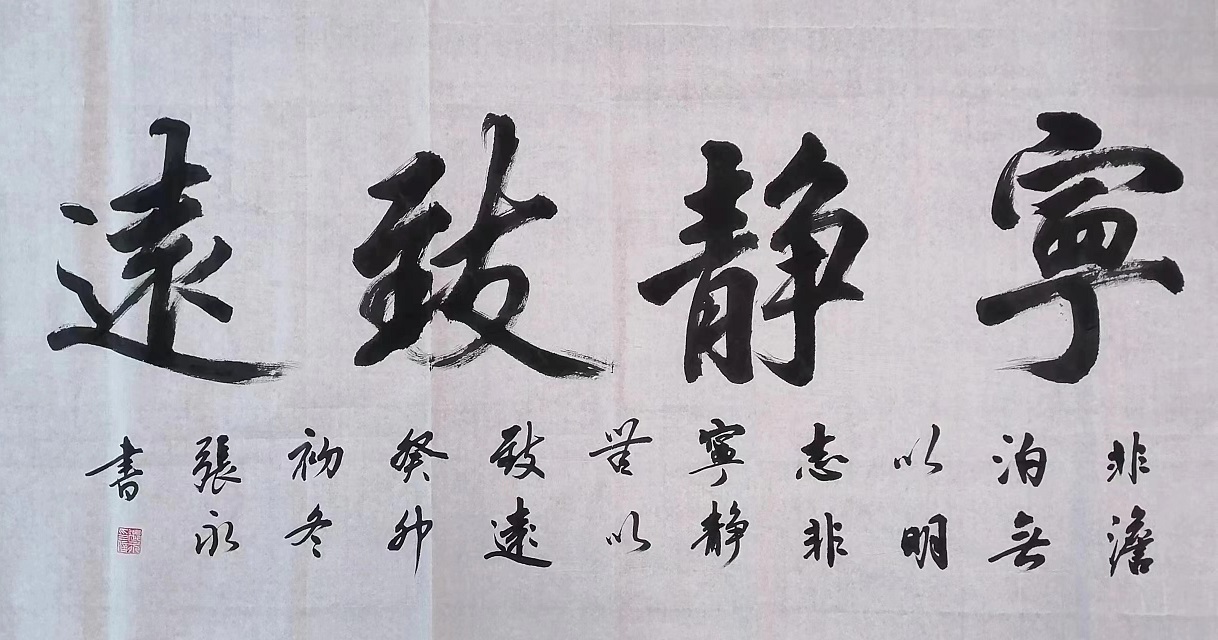 寧静致遠
非澹
泊無
以明
志非
寧静
無以
致遠
癸卯
初冬
張永
書